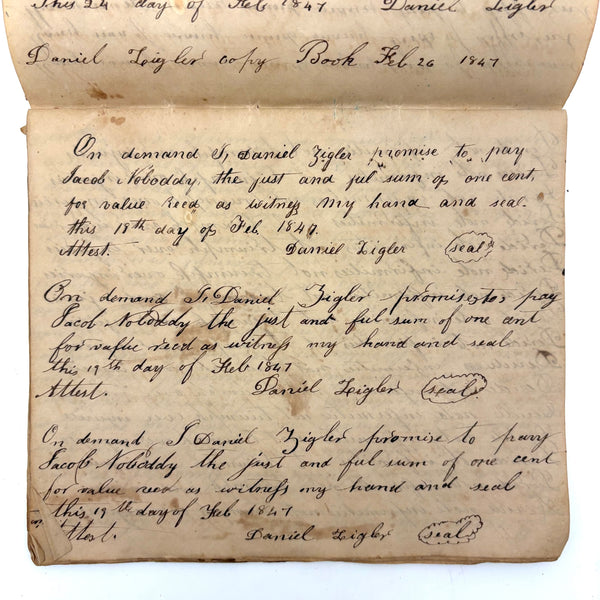 This 24 day of Feb 1847 Daniel Zigler
Daniel Zigler copy Book Feb 26 1847
On demand I, Daniel Zigler promise to pay
Jacob Noboddy, the just and ful sum of one cent,
for value recd as witness my hand and seal.
this 18th day of Feb 1847.
Attest. Daniel Zigler seal
On demand I, Daniel Zigler promise to pay
Jacob Noboddy the just and ful sum of one cent
for value recd as witness my hand and seal
this 19th day of Feb 1847
Attest. Daniel Zigler seal
On demand I Daniel Zigler promise to pavy
Jacob Noboddy the just and ful sum of one cent
for value recd as witness my hand and seal
this 19th day of Feb 1847
Attest. Daniel Zigler seal